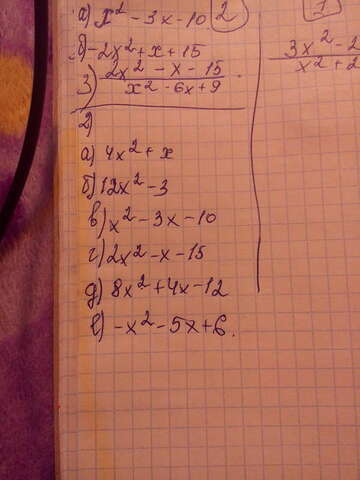 а) x² - 3x - 10 2
б) -2x² + x + 15
3) 2x² - x - 15 / x² - 6x + 9
2)
а) 4x² + x
б) 12x² - 3
в) x² - 3x - 10
г) 2x² - x - 15
д) 8x² + 4x - 12
е) -x² - 5x + 6.
1
3x² - 2
x² + 2